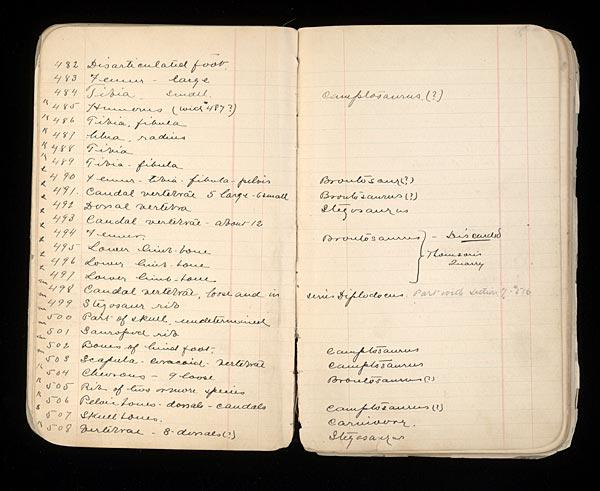 482 Disarticulated foot.
483 Femur - large
484 Tibia small.
485 Humerus (with 487?)
486 Tibia, fibula
487 Ulna, radius
488 Tibia
489 Tibia - fibula
490 Femur - tibia - fibula - pelvis
491. Caudal vertebrae 5 large - 6 small
492 Dorsal vertebra
493 Caudal vertebrae - about 12
494 Femur
495 Lower limb-bone
496 Lower limb-bone
497 Lower limb-bone
498 Caudal vertebrae, loose and in
499 Stegosaur rib
500 Part of skull, undetermined
501 Sauropod rib
502 Bones of hind foot.
503 Scapula - coracoid - vertebrae
504 Chevrons - 9 loose
505 Rib of two or more species
506 Pelvic bones - dorsals - caudals
507 Skull bones.
508 Vertebrae - 8 dorsals (?)
Camptosaurus (?)
Brontosaur (?)
Brontosaurus (?)
Stegosaurus
Brontosaurus - Discarded
Thomson's
Quarry
series Diplodocus. Part with section of
Camptosaurus
Camptosaurus
Brontosaurus (?)
Camptosaurus (?)
Carnivore.
Stegosaurus